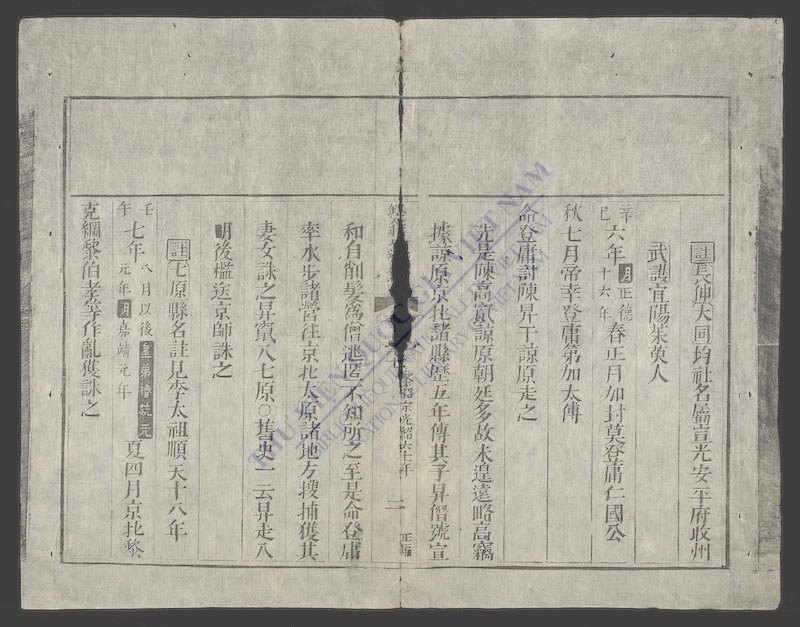 註長伸大同均社名屬宣光安平府收州
武護宜陽茱萸人
辛巳六年明正德十六年春正月加封莫登庸仁國公
秋七月帝幸登庸第加太傅
命登庸討陳昇于諒原走之
先是陳高竄諒原朝廷多故未遑遠略高竊
據諒原京北諸縣歷五年傳其子昇僭號宣
黎昭宗光紹六七年 二 正編
和自削髮為僧逃匿不知所之至是命登庸
率水步諸營往京北太原諸地方搜捕獲其
妻女誅之昇竄入七原○舊史一云昇走入
明後檻送京師誅之
註七原縣名註見李太祖順天十八年
壬午七年八月以後皇弟椿統元元年明嘉靖元年夏四月京北黎
克綱黎伯孝等作亂獲誅之
THƯ VIỆN QUỐC GIA VIỆT NAM
BIBLIOTHEQUE NATIONALE DU VIETNAM
NATIONAL LIBRARY OF VIETNAM